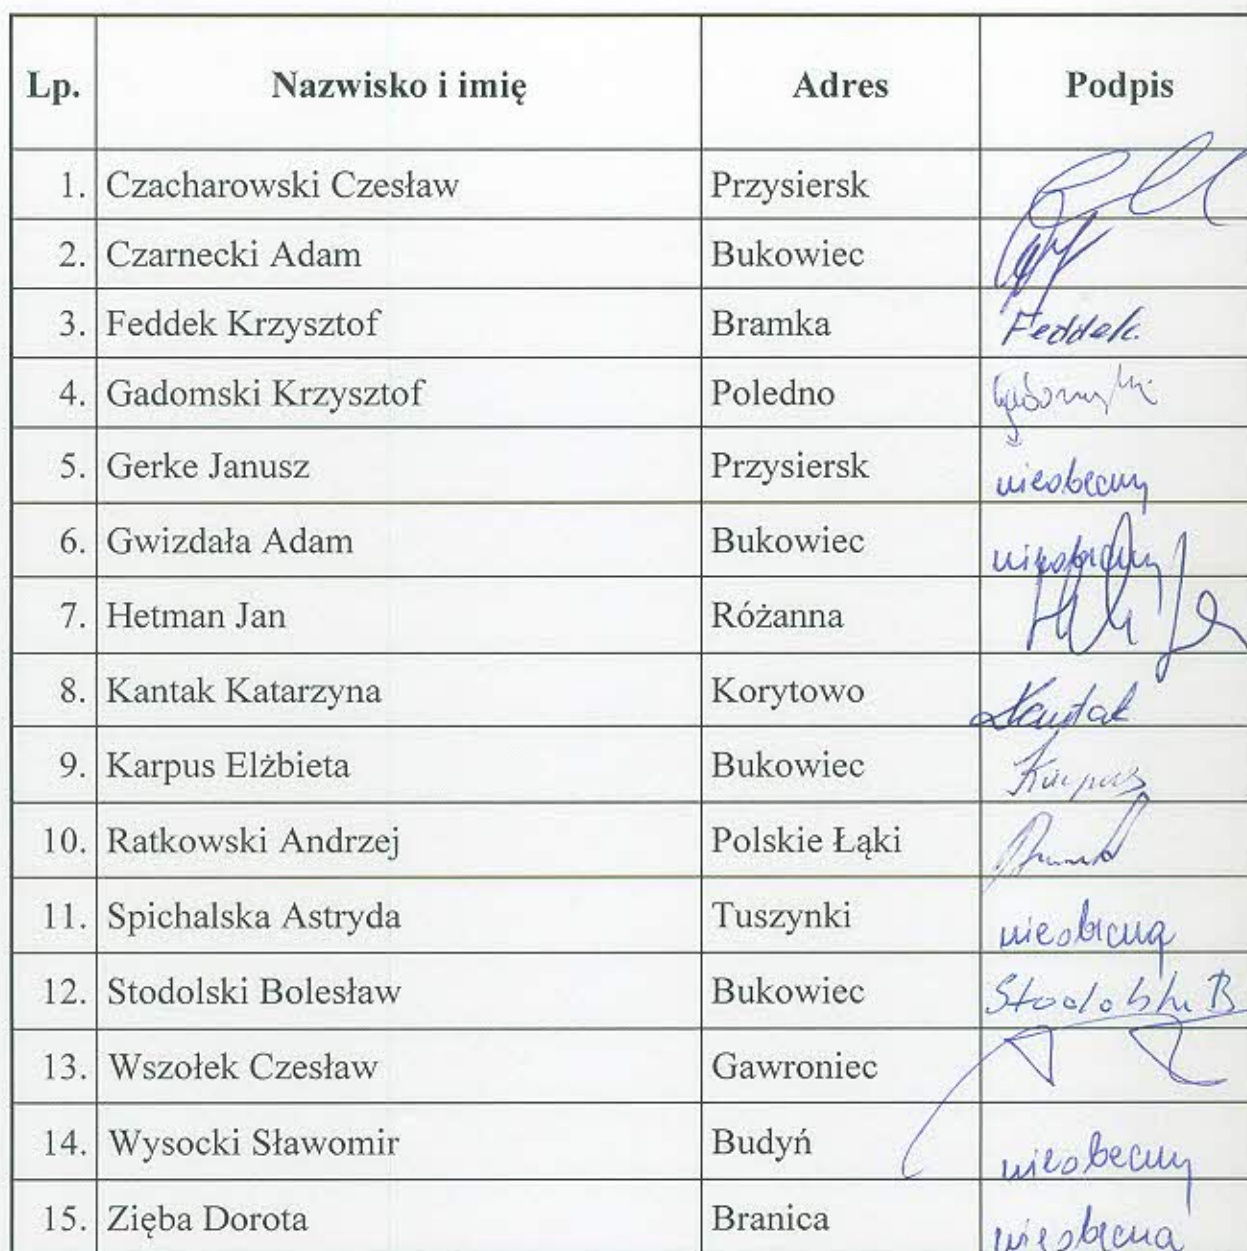 Lp. Nazwisko i imię Adres Podpis
1. Czacharowski Czesław Przysiersk
2. Czarnecki Adam Bukowiec
3. Feddek Krzysztof Bramka Feddek.
4. Gadomski Krzysztof Poledno
5. Gerke Janusz Przysiersk nieobecny
6. Gwizdała Adam Bukowiec nieobecny
7. Hetman Jan Różanna
8. Kantak Katarzyna Korytowo Kantak
9. Karpus Elżbieta Bukowiec Karpus
10. Ratkowski Andrzej Polskie Łąki
11. Spichalska Astryda Tuszynki nieobecna
12. Stodolski Bolesław Bukowiec Stodolski B
13. Wszołek Czesław Gawroniec
14. Wysocki Sławomir Budyń nieobecny
15. Zięba Dorota Branica nieobecna